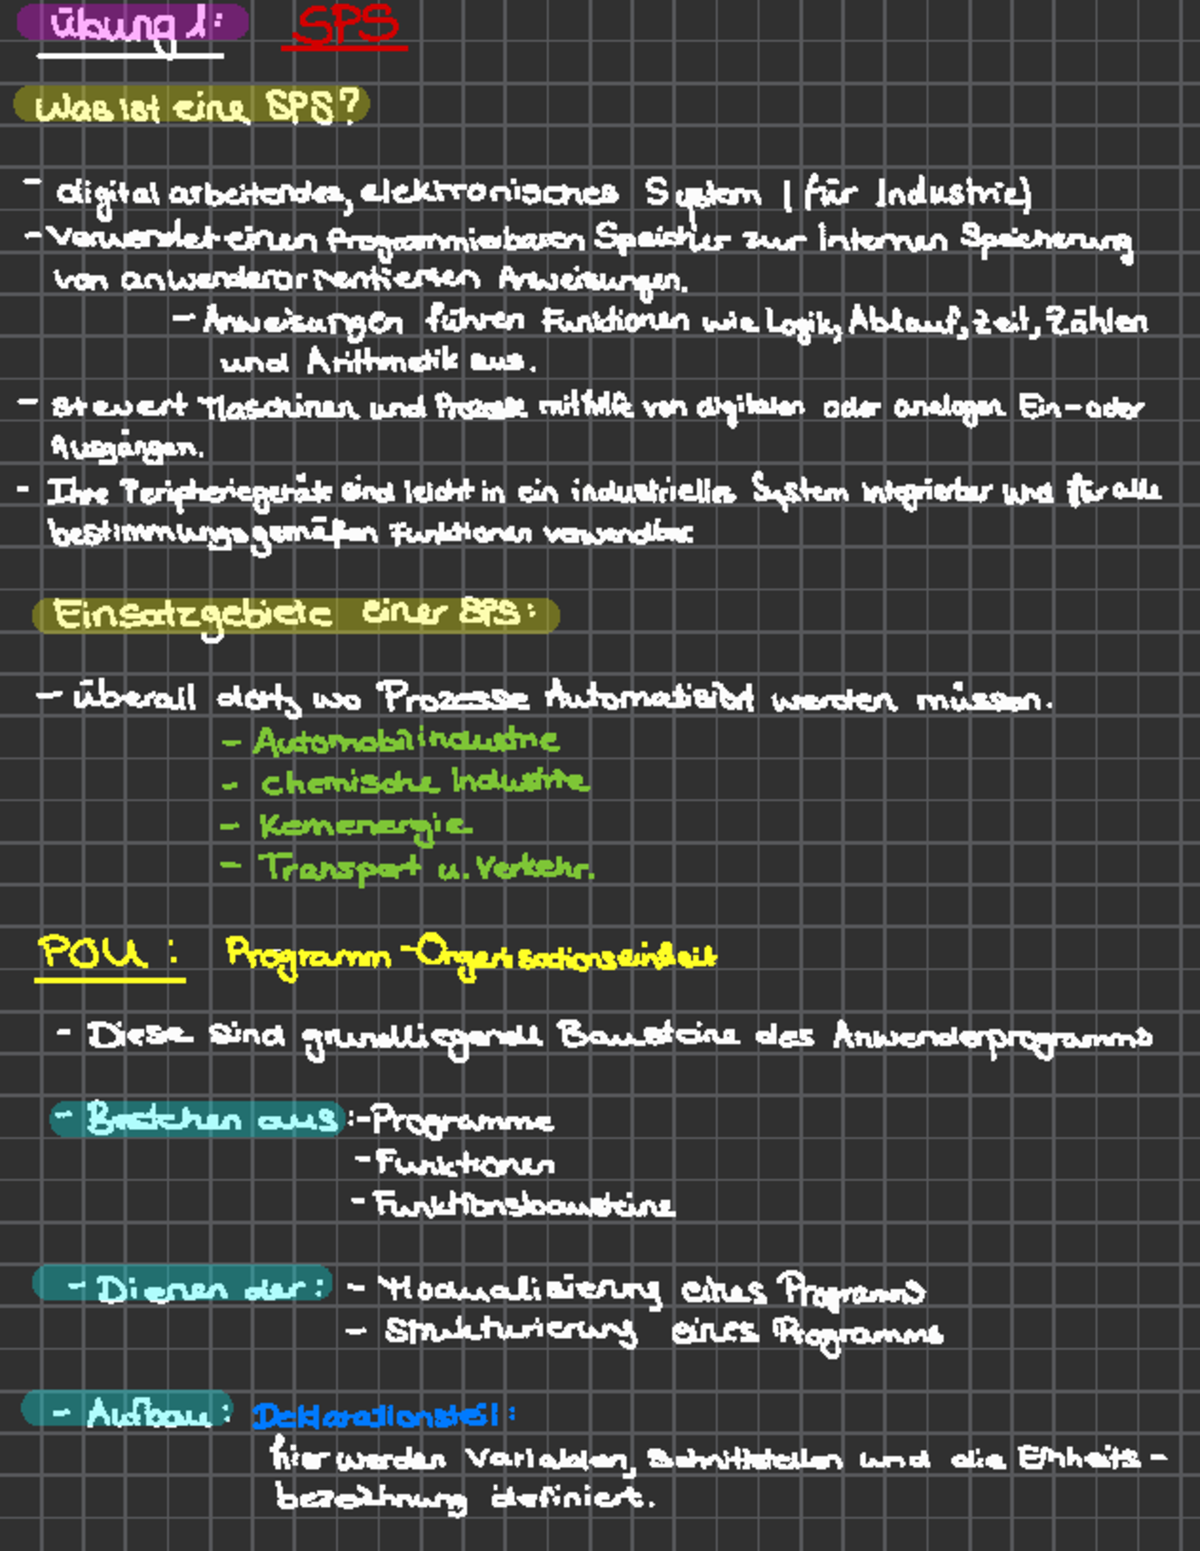 Übung 1: SPS
Was ist eine SPS?
- digital arbeitendes, elektronisches System | (für Industrie)
- Verwendet einen Programmierbaren Speicher zur Internen Speicherung
von anwenderorientierten Anweisungen.
- Anweisungen führen Funktionen wie Logik, Ablauf, Zeit, Zählen
und Arithmetik aus.
- steuert Maschinen und Prozesse mithilfe von digitalen oder analogen Ein- oder
Ausgängen.
- Ihre Peripheriegeräte sind leicht in ein industrielles System integrierbar und für alle
bestimmungsgemäßen Funktionen verwendbar.
Einsatzgebiete einer SPS:
- überall dort, wo Prozesse Automatisiert werden müssen.
- Automobilindustrie
- chemische Industrie
- Kernenergie
- Transport u. Verkehr.
POU: Programm-Organisationseinheit
- Diese sind grundliegende Bausteine des Anwenderprogramms
- Bestehen aus: - Programme
- Funktionen
- Funktionsbausteine
- Dienen der: - Modualisierung eines Programms
- Strukturierung eines Programms
- Aufbau: Deklarationsteil:
hier werden Variablen, Schnittstellen und die Einheits-
bezeichnung definiert.